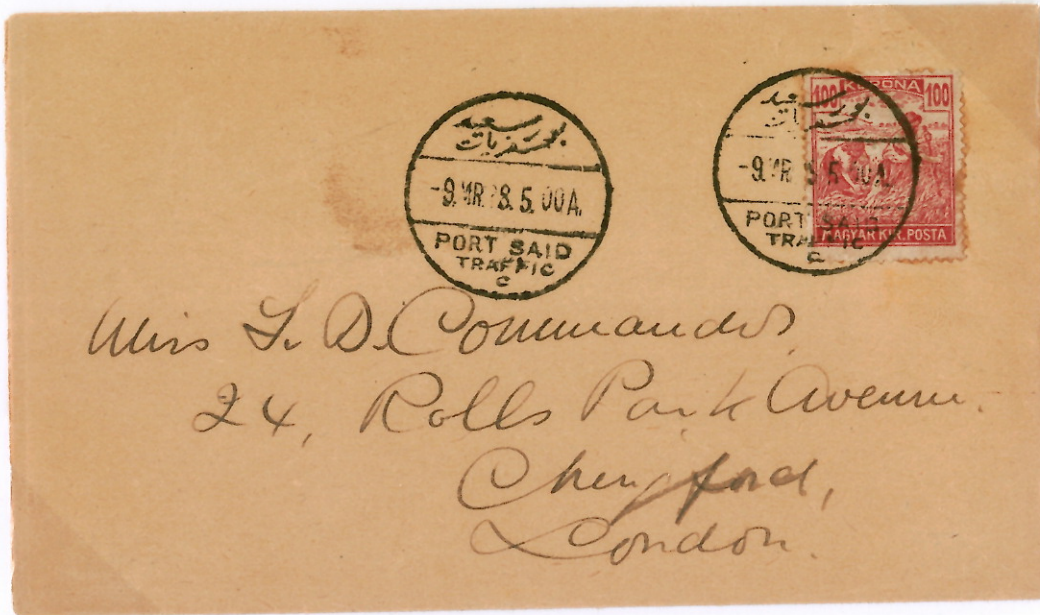 بور سعيد
-9.MR.28.5.00A.
PORT SAID
TRAFFIC
C
بور سعيد
-9.MR 5.00A.
PORT SAID
TRAFFIC
C
100 KORONA 100
MAGYAR KIR. POSTA
Miss L. D. Commander
24, Rolls Park Avenue.
Chingford,
London.